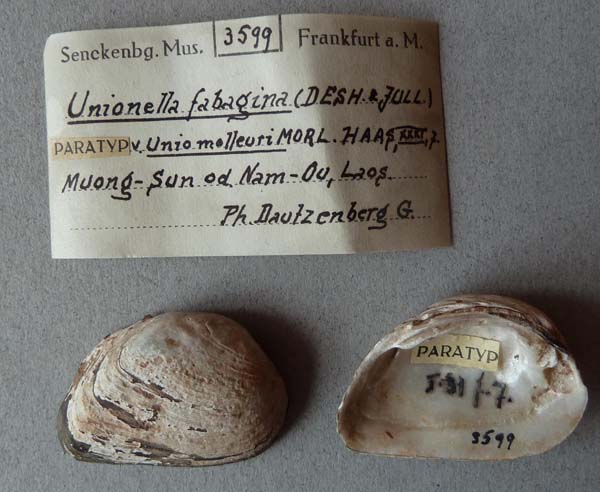 Senckenbg. Mus. 3599 Frankfurt a. M.
Unionella fabagina (DESH. & JULL.)
PARATYP v. Unio molleuri MORL. HAAS, f. 7.
Muong-Sun od Nam-Ou, Laos.
Ph. Dautzenberg G.
PARATYP
f. 7.
3599